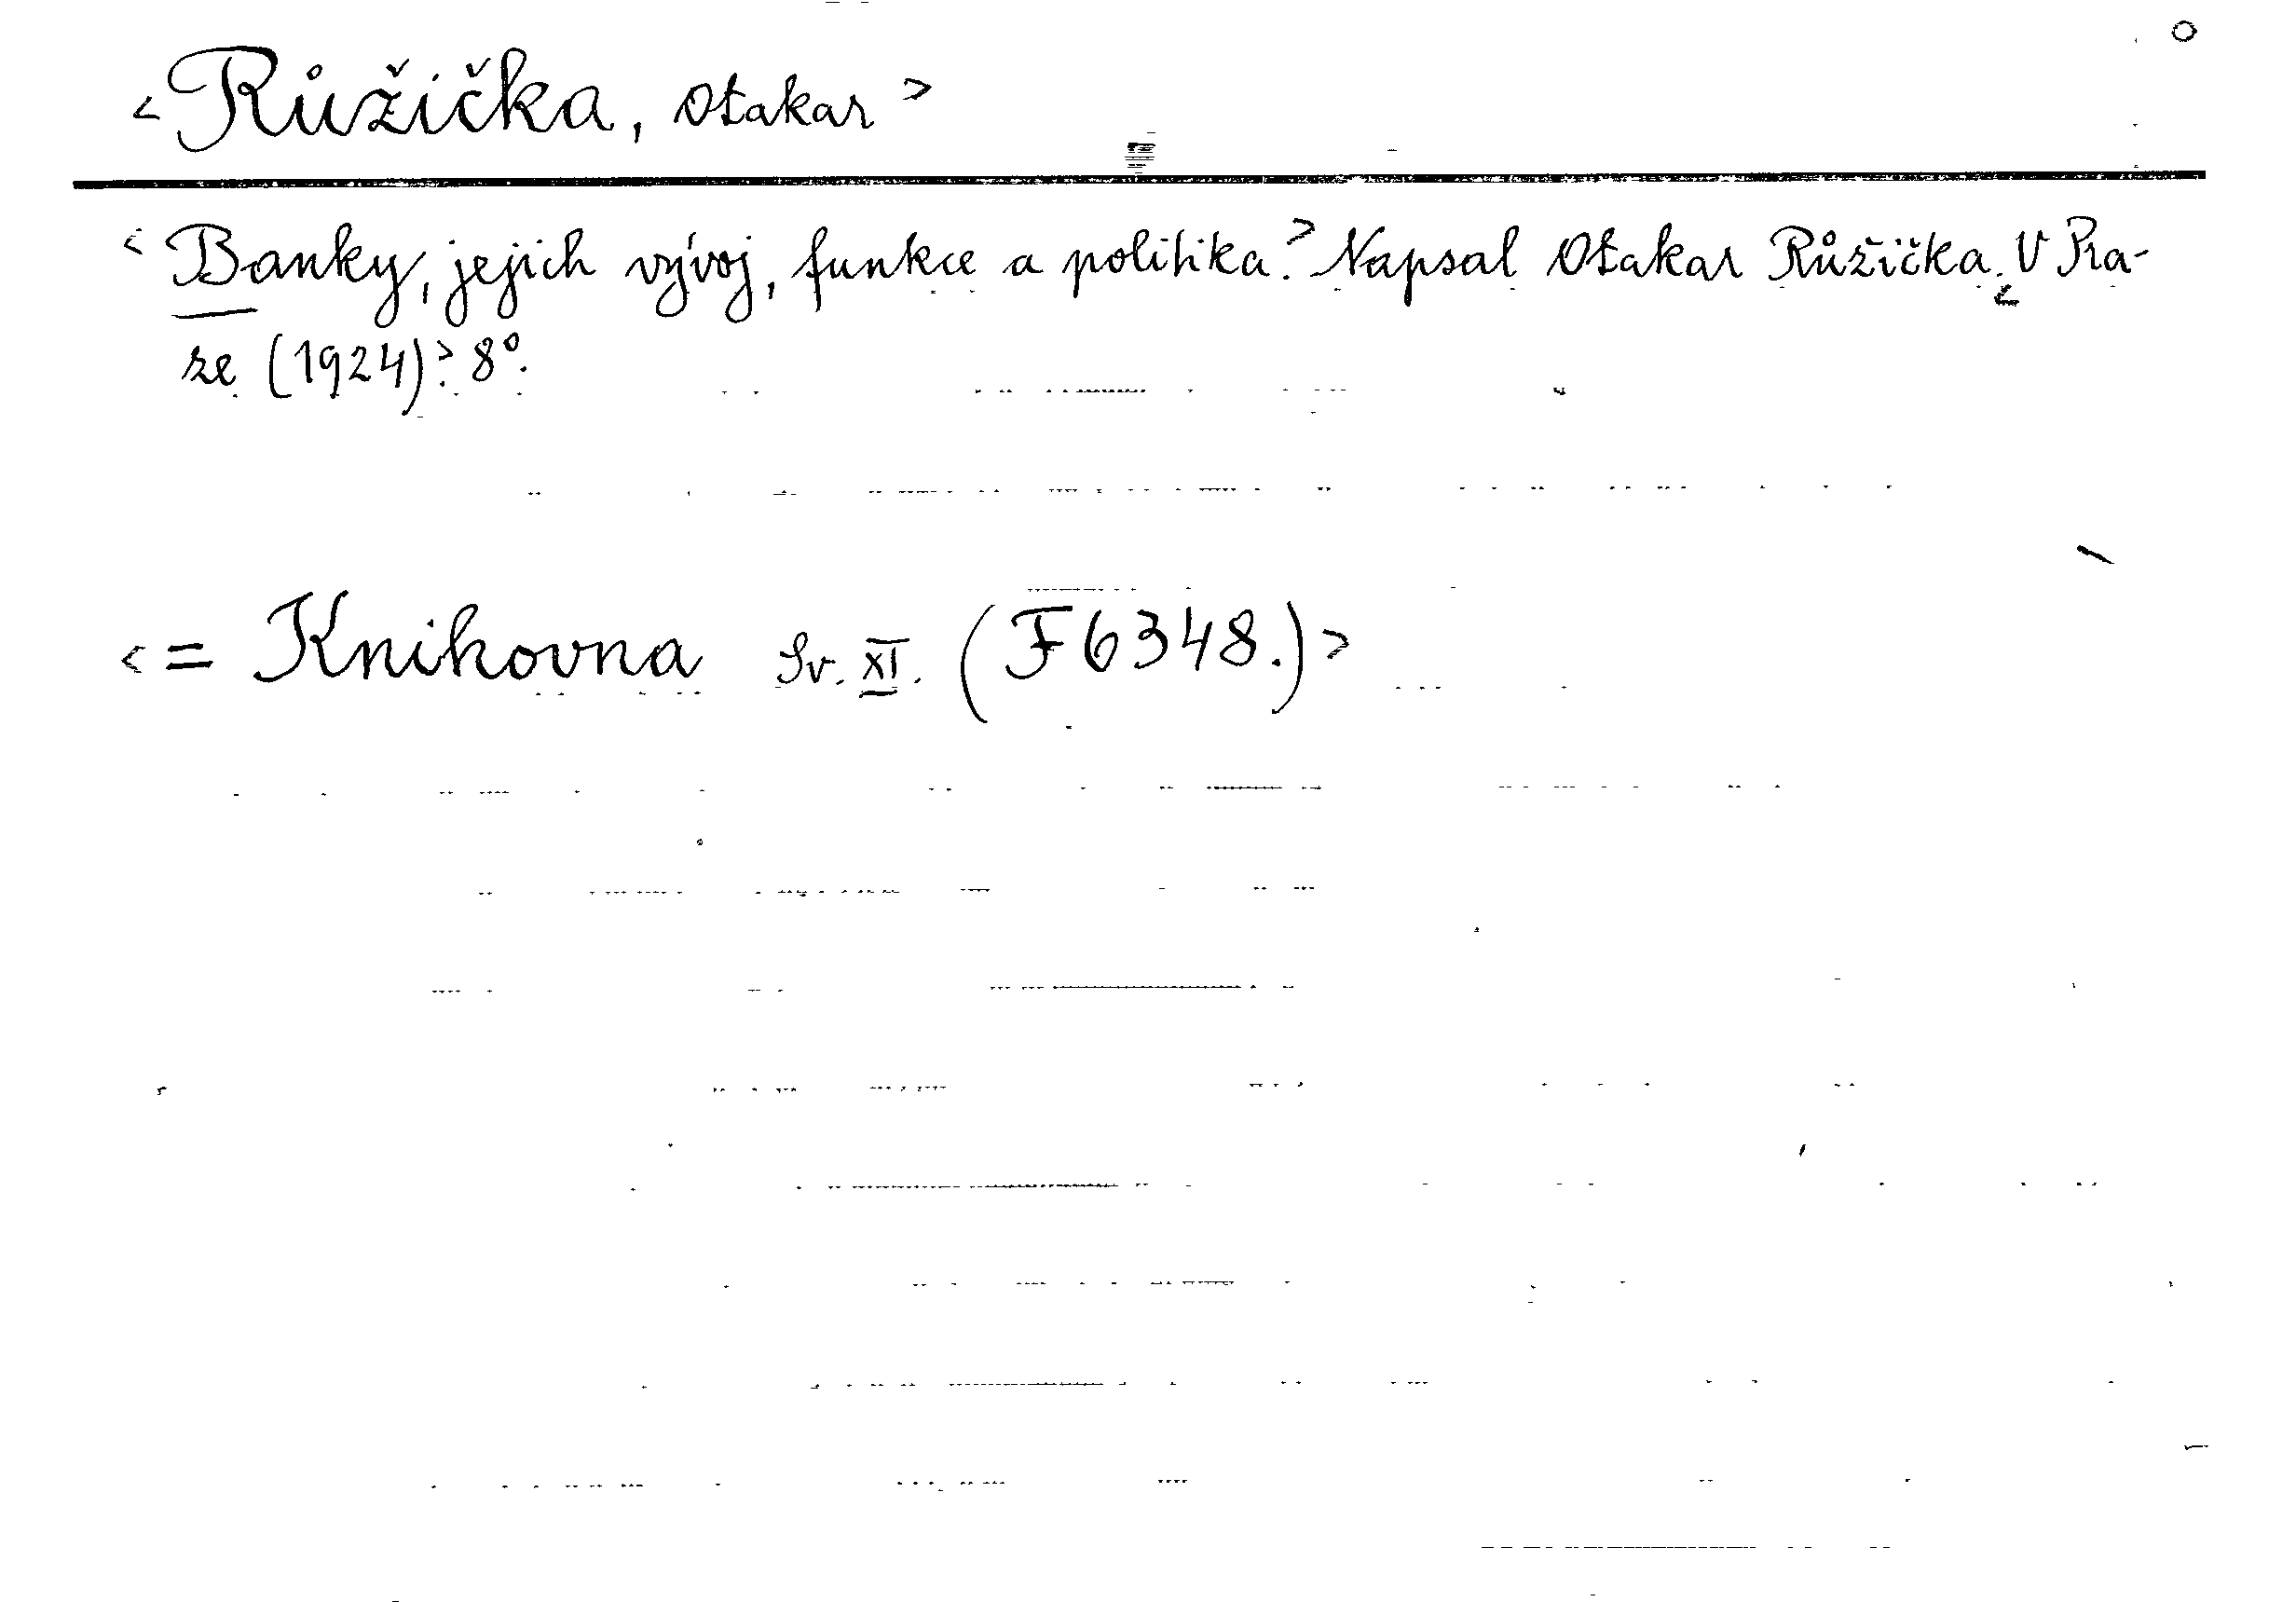 <Růžička, Otakar>
<Banky, jejich vývoj, funkce a politika.> Napsal Otakar Růžička. <V Pra-
ze (1924).> 8°.
<= Knihovna Sv. XI. (F6348.)>